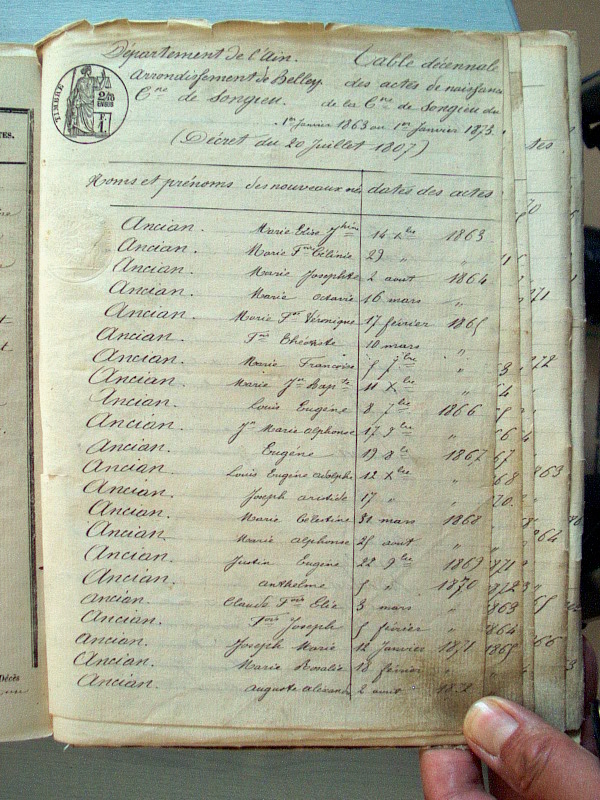 Département de l'Ain. Table décennale
arrondissement de Belley. des actes de naissance
Cne de Songieu. de la Cne de Songieu du
1er Janvier 1863 au 1er Janvier 1873.
(Décret du 20 Juillet 1807)
TIMBRE
Noms et prénoms des nouveaux nés dates des actes
Ancian. Marie Elise Jhine 14 Xbre 1863
Ancian. Marie Fse Célinie 29 " "
Ancian. Marie Josephte 2 aout 1864
Ancian. Marie octavie 16 mars "
Ancian. Marie Fse Véronique 17 février 1865
Ancian. 10 mars "
Ancian. Marie Françoise 5 7bre "
Ancian. Marie Jne Bapte 11 Xbre "
Ancian. Louis Eugène 8 7bre 1866
Ancian. Jn Marie alphonse 17 9bre "
Ancian. Eugène 19 8bre 1867
Ancian. Louis Eugène adolphe 12 Xbre "
Ancian. Joseph aristide 17 " "
Ancian. Marie Célestine 31 mars 1868
Ancian. Marie alphonse 25 aout "
Ancian. Justin Eugène 22 9bre 1869
Ancian. anthelme 5 " 1870
Ancian. Claude Fois Elie 3 mars "
Ancian. Fois Joseph 5 février "
Ancian. Joseph Marie 12 Janvier 1871
Ancian. Marie Rosalie 18 février "
Ancian. auguste 2 aout